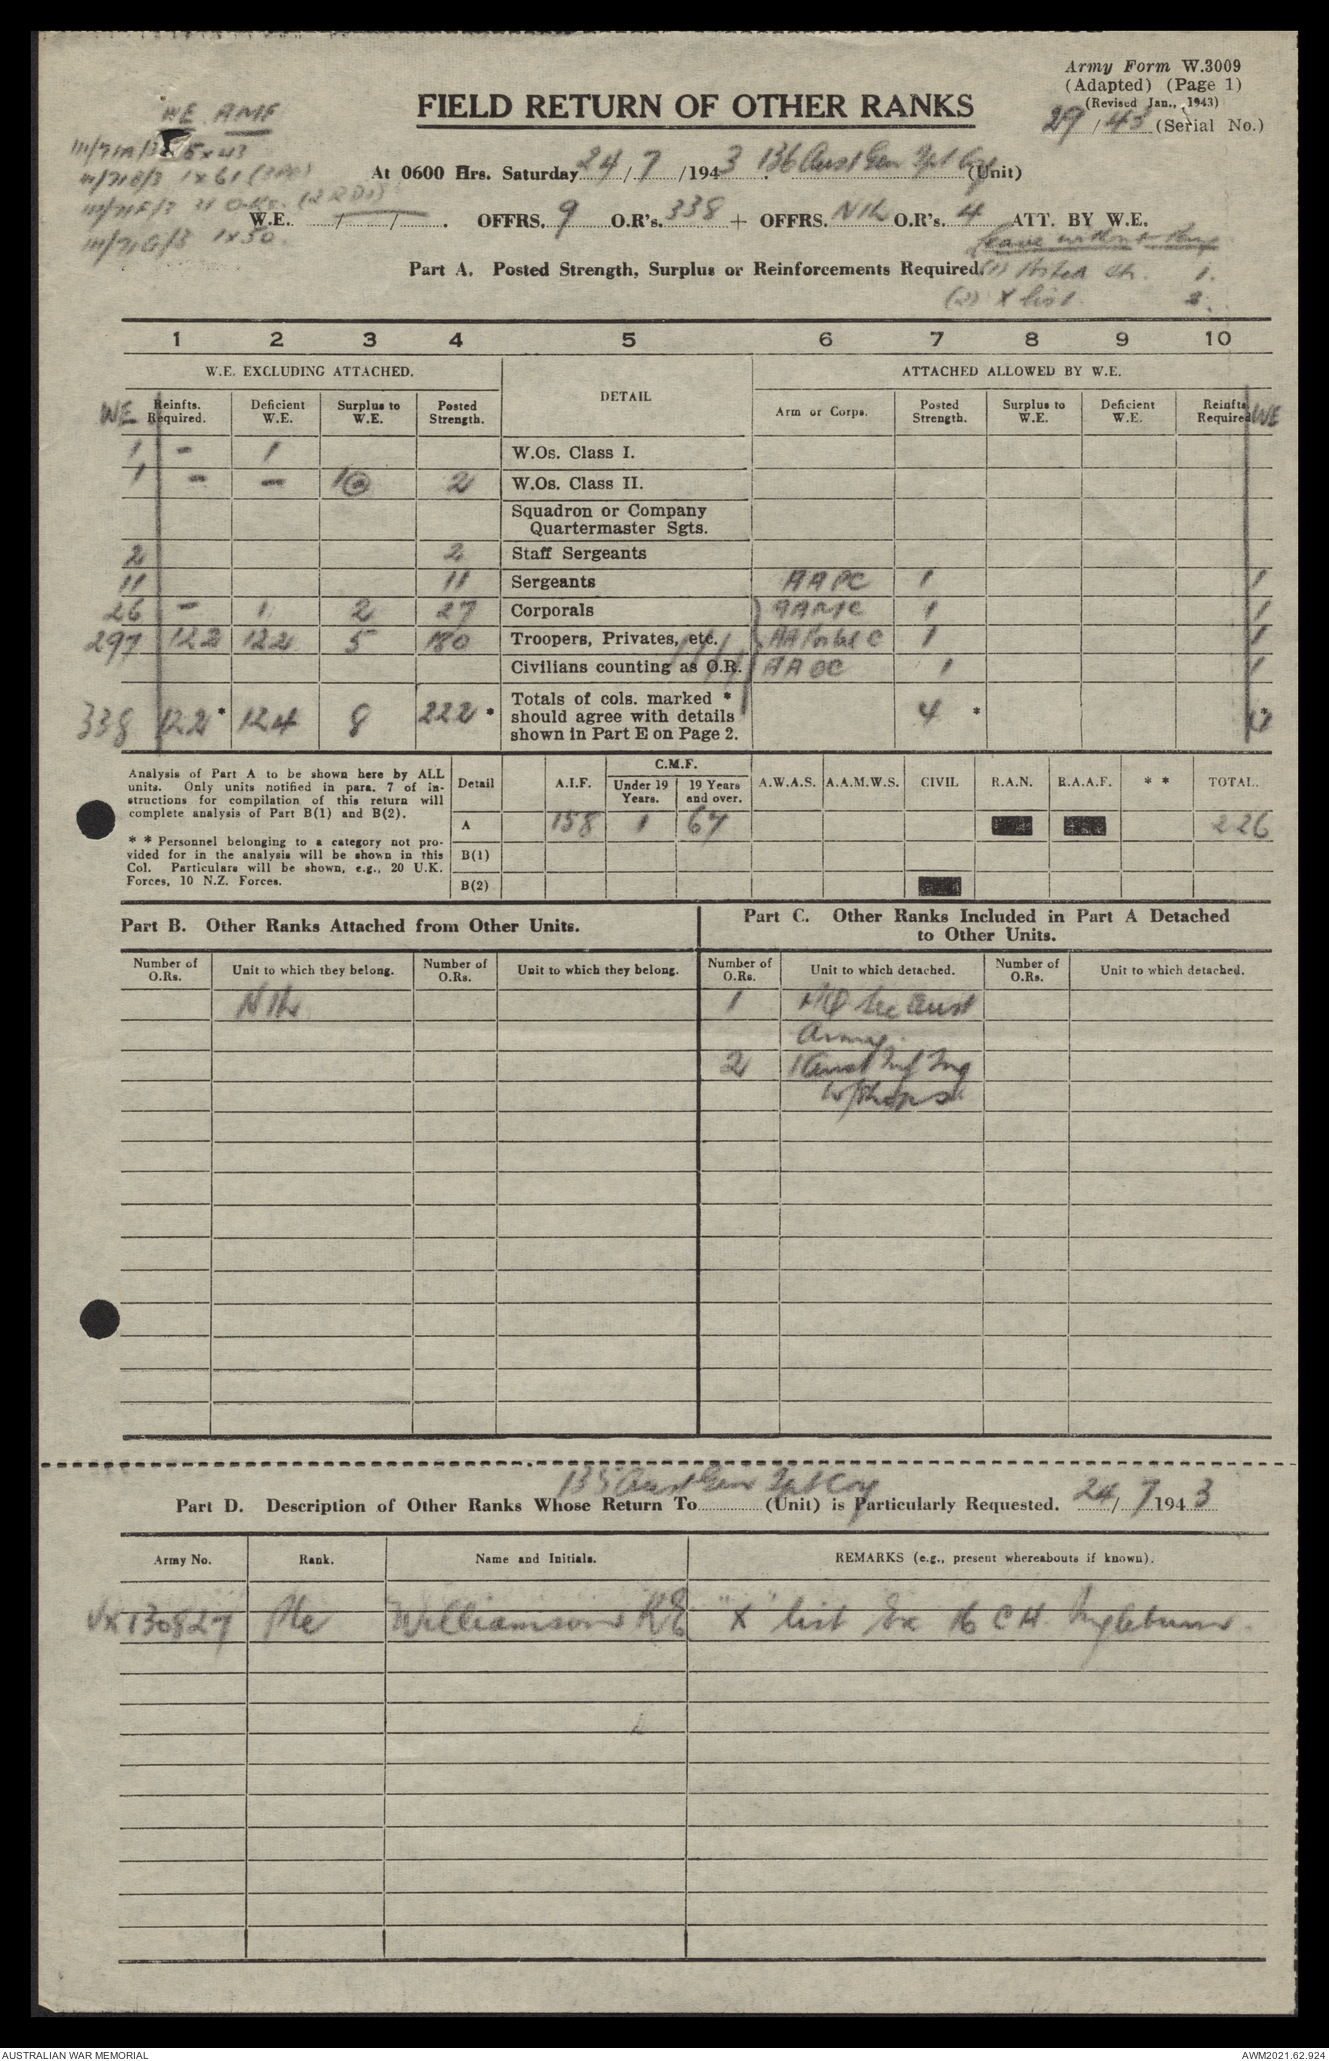 Army Form W.3009
(Adapted) (Page 1)
(Revised Jan., 1943)
29 / 43 (Serial No.)
WE AMF
FIELD RETURN OF OTHER RANKS
At 0600 Hrs. Saturday 24 / 7 / 1943 136 Aust Gen Tpt Coy (Unit)
W.E. / / . OFFRS. 9 O.R's. 338 + OFFRS. Nil O.R's. 4 ATT. BY W.E.
III/71G/3 1x50.
Leave without Pay
Part A. Posted Strength, Surplus or Reinforcements Required.
(1) Posted 1.
(2) X list. 2.
1 2 3 4 5 6 7 8 9 10
W.E. EXCLUDING ATTACHED. DETAIL ATTACHED ALLOWED BY W.E.
WE Reinfts. Required. Deficient W.E. Surplus to W.E. Posted Strength. Arm or Corps. Posted Strength. Surplus to W.E. Deficient W.E. Reinfts Required WE
1 - 1 W.Os. Class I.
1 - - 1 2 W.Os. Class II.
Squadron or Company
Quartermaster Sgts.
2 2 Staff Sergeants
11 11 Sergeants AAPC 1 1
26 - 1 2 27 Corporals AAMC 1 1
297 122 122 5 180 Troopers, Privates, etc. AA Postal C 1 1
Civilians counting as O.R. AAOC 1 1
338 122 * 124 8 222 * Totals of cols. marked * should agree with details shown in Part E on Page 2. 4 * 4 *
Analysis of Part A to be shown here by ALL
units. Only units notified in para. 7 of in-
structions for compilation of this return will
complete analysis of Part B(1) and B(2).
* * Personnel belonging to a category not pro-
vided for in the analysis will be shown in this
Col. Particulars will be shown, e.g., 20 U.K.
Forces, 10 N.Z. Forces.
Detail A.I.F. C.M.F. Under 19 Years. 19 Years and over. A.W.A.S. A.A.M.W.S. CIVIL R.A.N. R.A.A.F. * * TOTAL.
A 158 1 67 226
B(1)
B(2)
Part B. Other Ranks Attached from Other Units.
Part C. Other Ranks Included in Part A Detached
to Other Units.
Number of O.Rs. Unit to which they belong. Number of O.Rs. Unit to which they belong. Number of O.Rs. Unit to which detached. Number of O.Rs. Unit to which detached.
Nil 1 HQ Sec Aust
Army.
2 1 Aust Tng
W/Shops
135 Aust Gen Tpt Coy
Part D. Description of Other Ranks Whose Return To (Unit) is Particularly Requested. 24 / 7 1943
Army No. Rank. Name and Initials. REMARKS (e.g., present whereabouts if known).
VX130827 Pte Williamson R E "X" list Ex 16 C H Ingleburn.
AUSTRALIAN WAR MEMORIAL
AWM2021.62.924